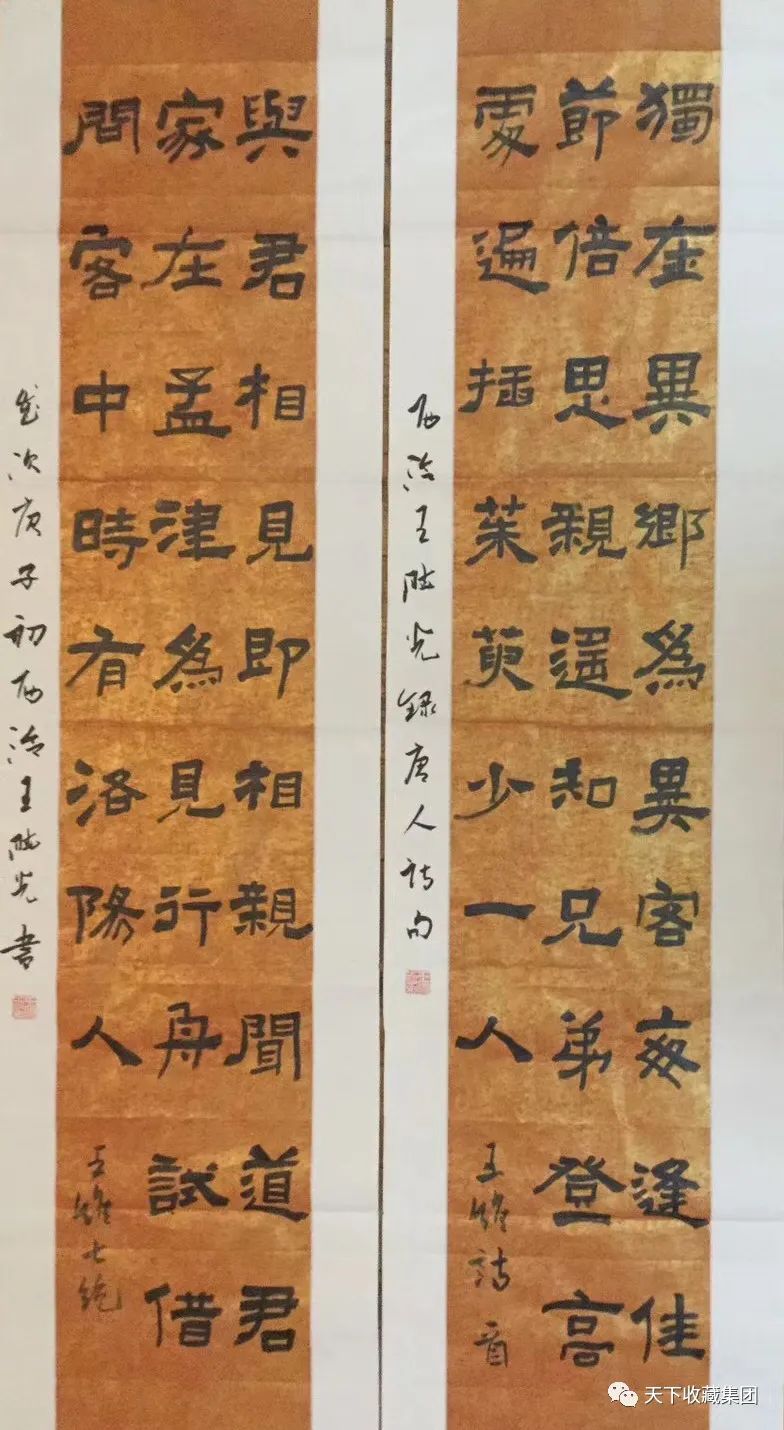 獨在異鄉為異客每逢佳
節倍思親遥知兄弟登高
處遍插茱萸少一人
王維詩首
西泠王光録唐人诗句
與君相見即相親聞道君
家在孟津為見行舟試借
問客中時有洛陽人
王維七绝
歲次庚子初西泠王光書
天下收藏集团